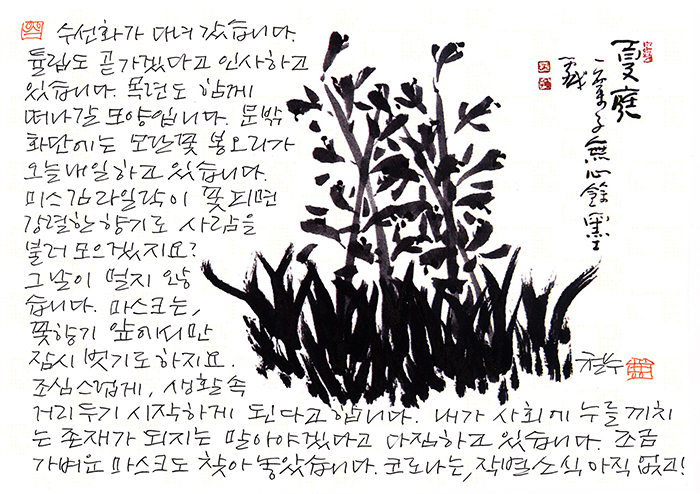 수선화가 다녀 갔습니다.
튤립도 곧 가겠다고 인사하고
있습니다. 목련도 함께
떠나갈 모양입니다. 문밖
화단에는 모란꽃 봉오리가
오늘내일 하고 있습니다.
미스김라일락이 꽃 피면
강렬한 향기로 사람을
불러 모으겠지요?
그날이 멀지 않
습니다. 마스크는,
꽃향기 앞에서만
잠시 벗기로 하지요.
조심스럽게, 생활 속
거리두기 시작하게 된다고 합니다. 내가 사회에 누를 끼치
는 존재가 되지는 말아야겠다고 다짐하고 있습니다. 조금
가벼운 마스크도 찾아 놓았습니다. 코로나는, 작별소식 아직 없고!
夏庭
無心餘墨
철수